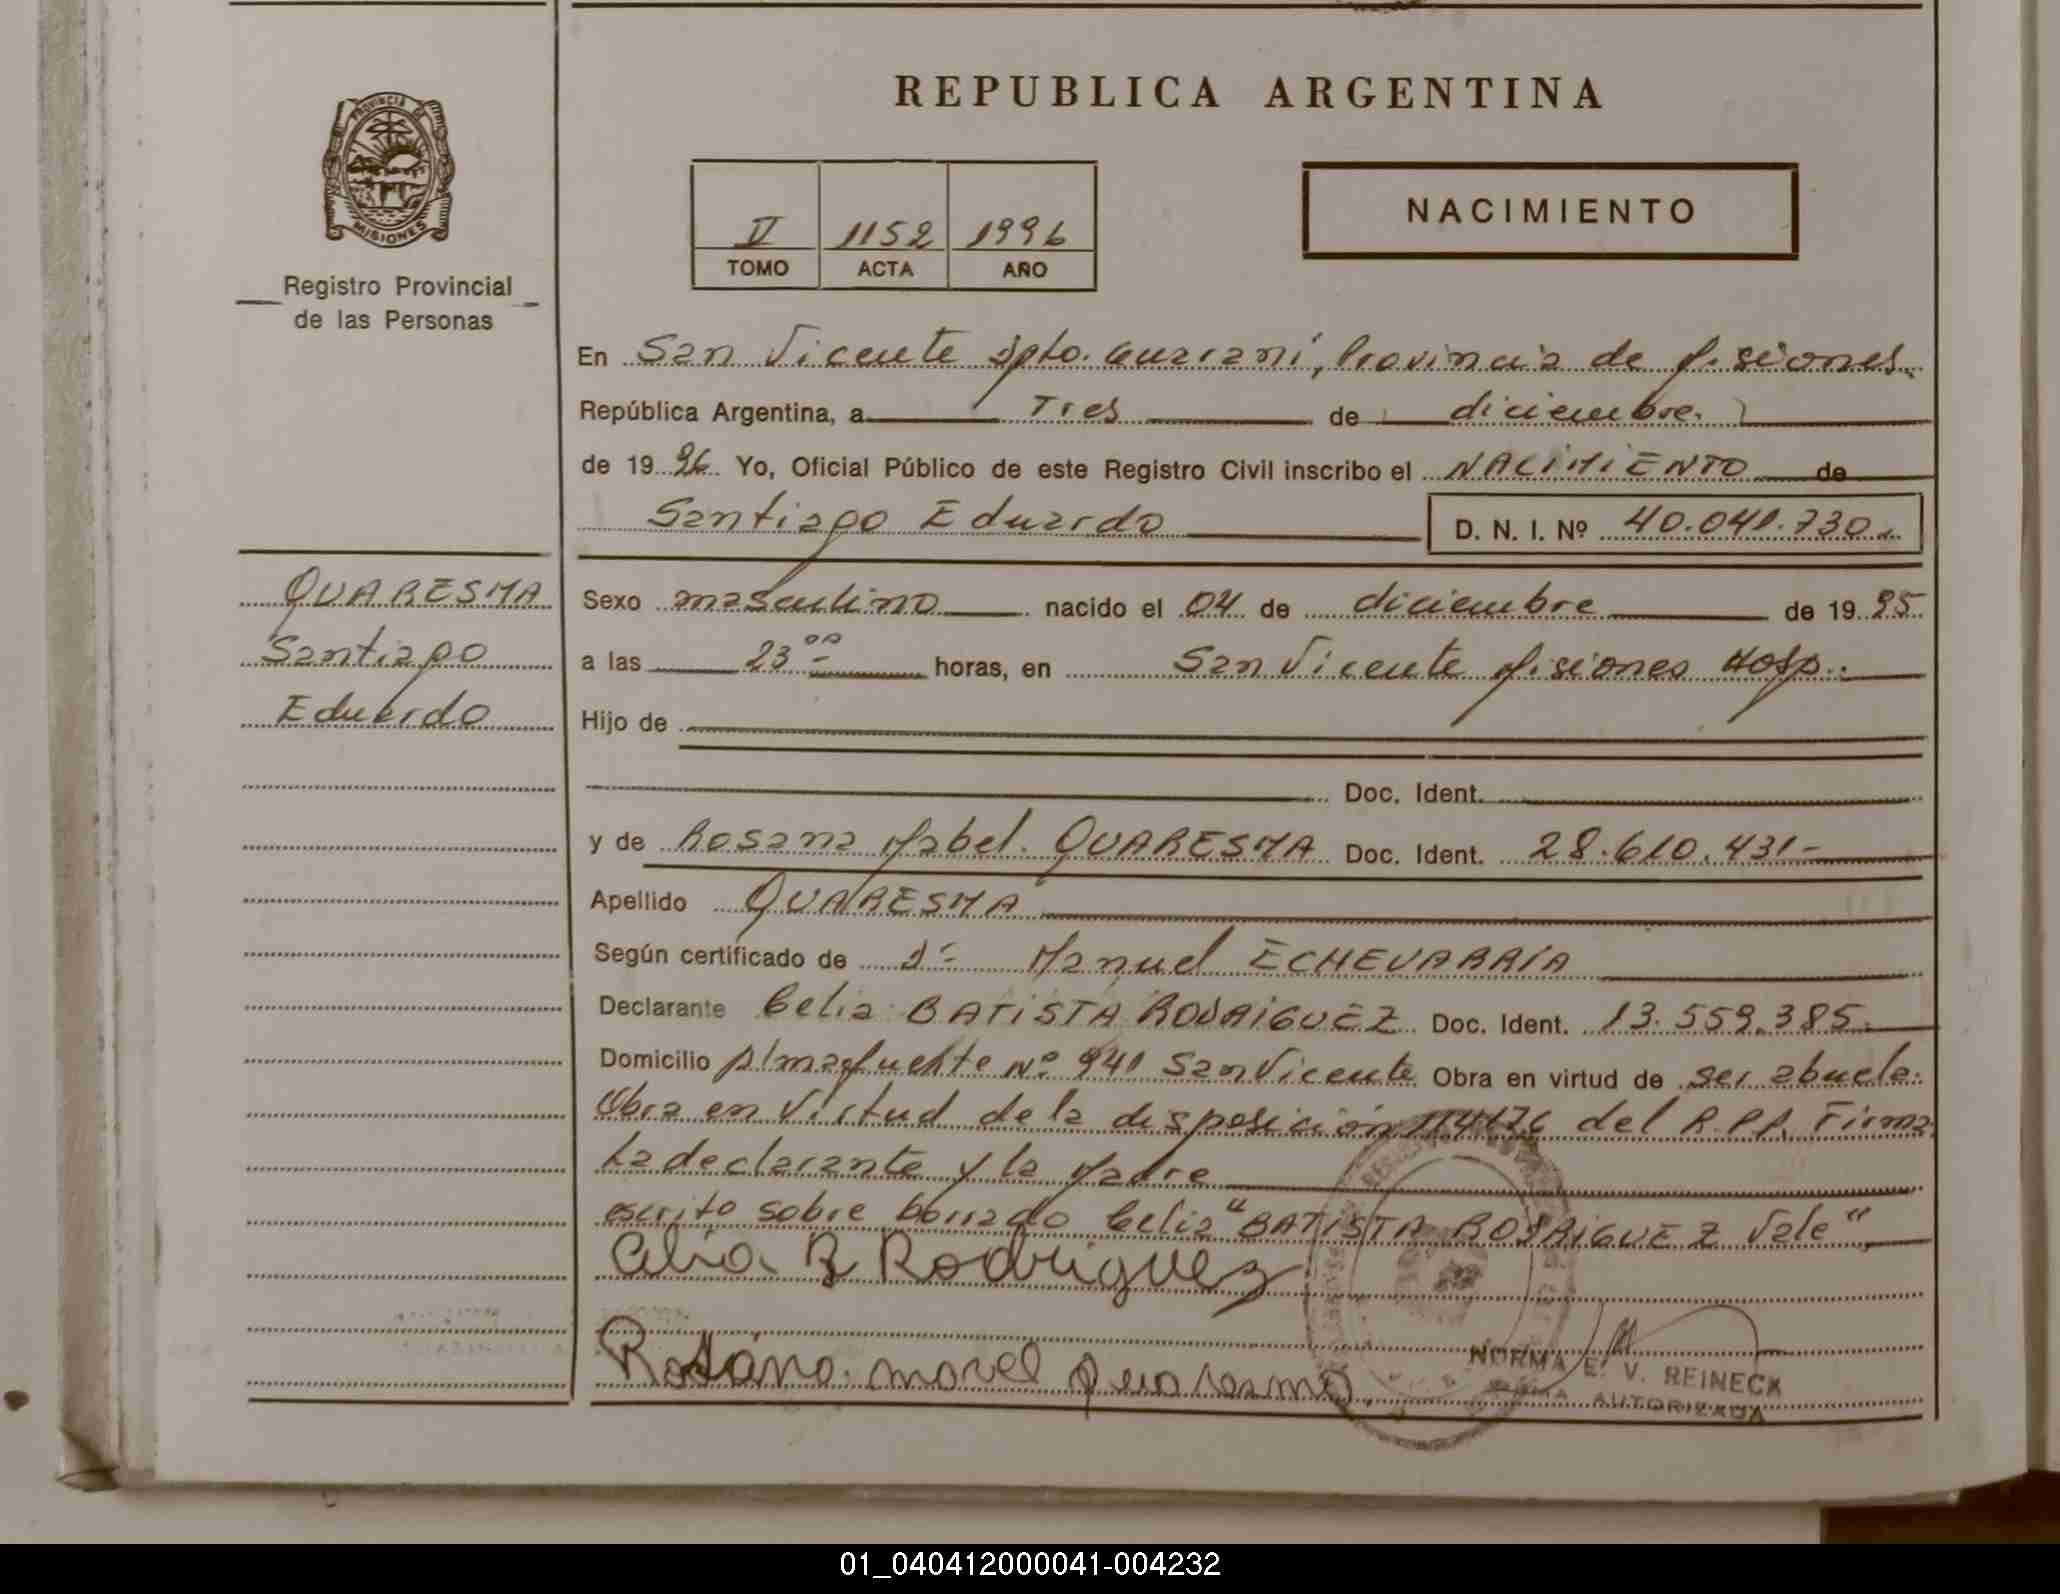 REPUBLICA ARGENTINA
PROVINCIA DE
MISIONES
Registro Provincial
de las Personas
V 1152 1996
TOMO ACTA AÑO
NACIMIENTO
En San Vicente Dpto. Guaraní, Provincia de Misiones.
República Argentina, a Tres de diciembre
de 1996 Yo, Oficial Público de este Registro Civil inscribo el NACIMIENTO de
Santiago Eduardo D. N. I. Nº 40.041.730.
QUARESMA
Santiago
Eduardo
Sexo masculino nacido el 04 de diciembre de 1995
a las 23 00 horas, en San Vicente Misiones Hosp.
Hijo de
Doc. Ident.
y de Rosana Mabel QUARESMA Doc. Ident. 28.610.431-
Apellido QUARESMA
Según certificado de Dr Manuel ECHEVARRIA
Declarante Celia BATISTA RODRIGUEZ Doc. Ident. 13.559.385.
Domicilio Almafuerte Nº 941 San Vicente Obra en virtud de ser abuela.
Obra en Virtud de la disposición del R.P.P. Firma
La declarante y la Madre
escrito sobre borrado Celia "BATISTA RODRIGUEZ Vale"
Celia B Rodriguez
Rosana mavel
NORMA E. V. REINECK
FIRMA AUTORIZADA
01_040412000041-004232